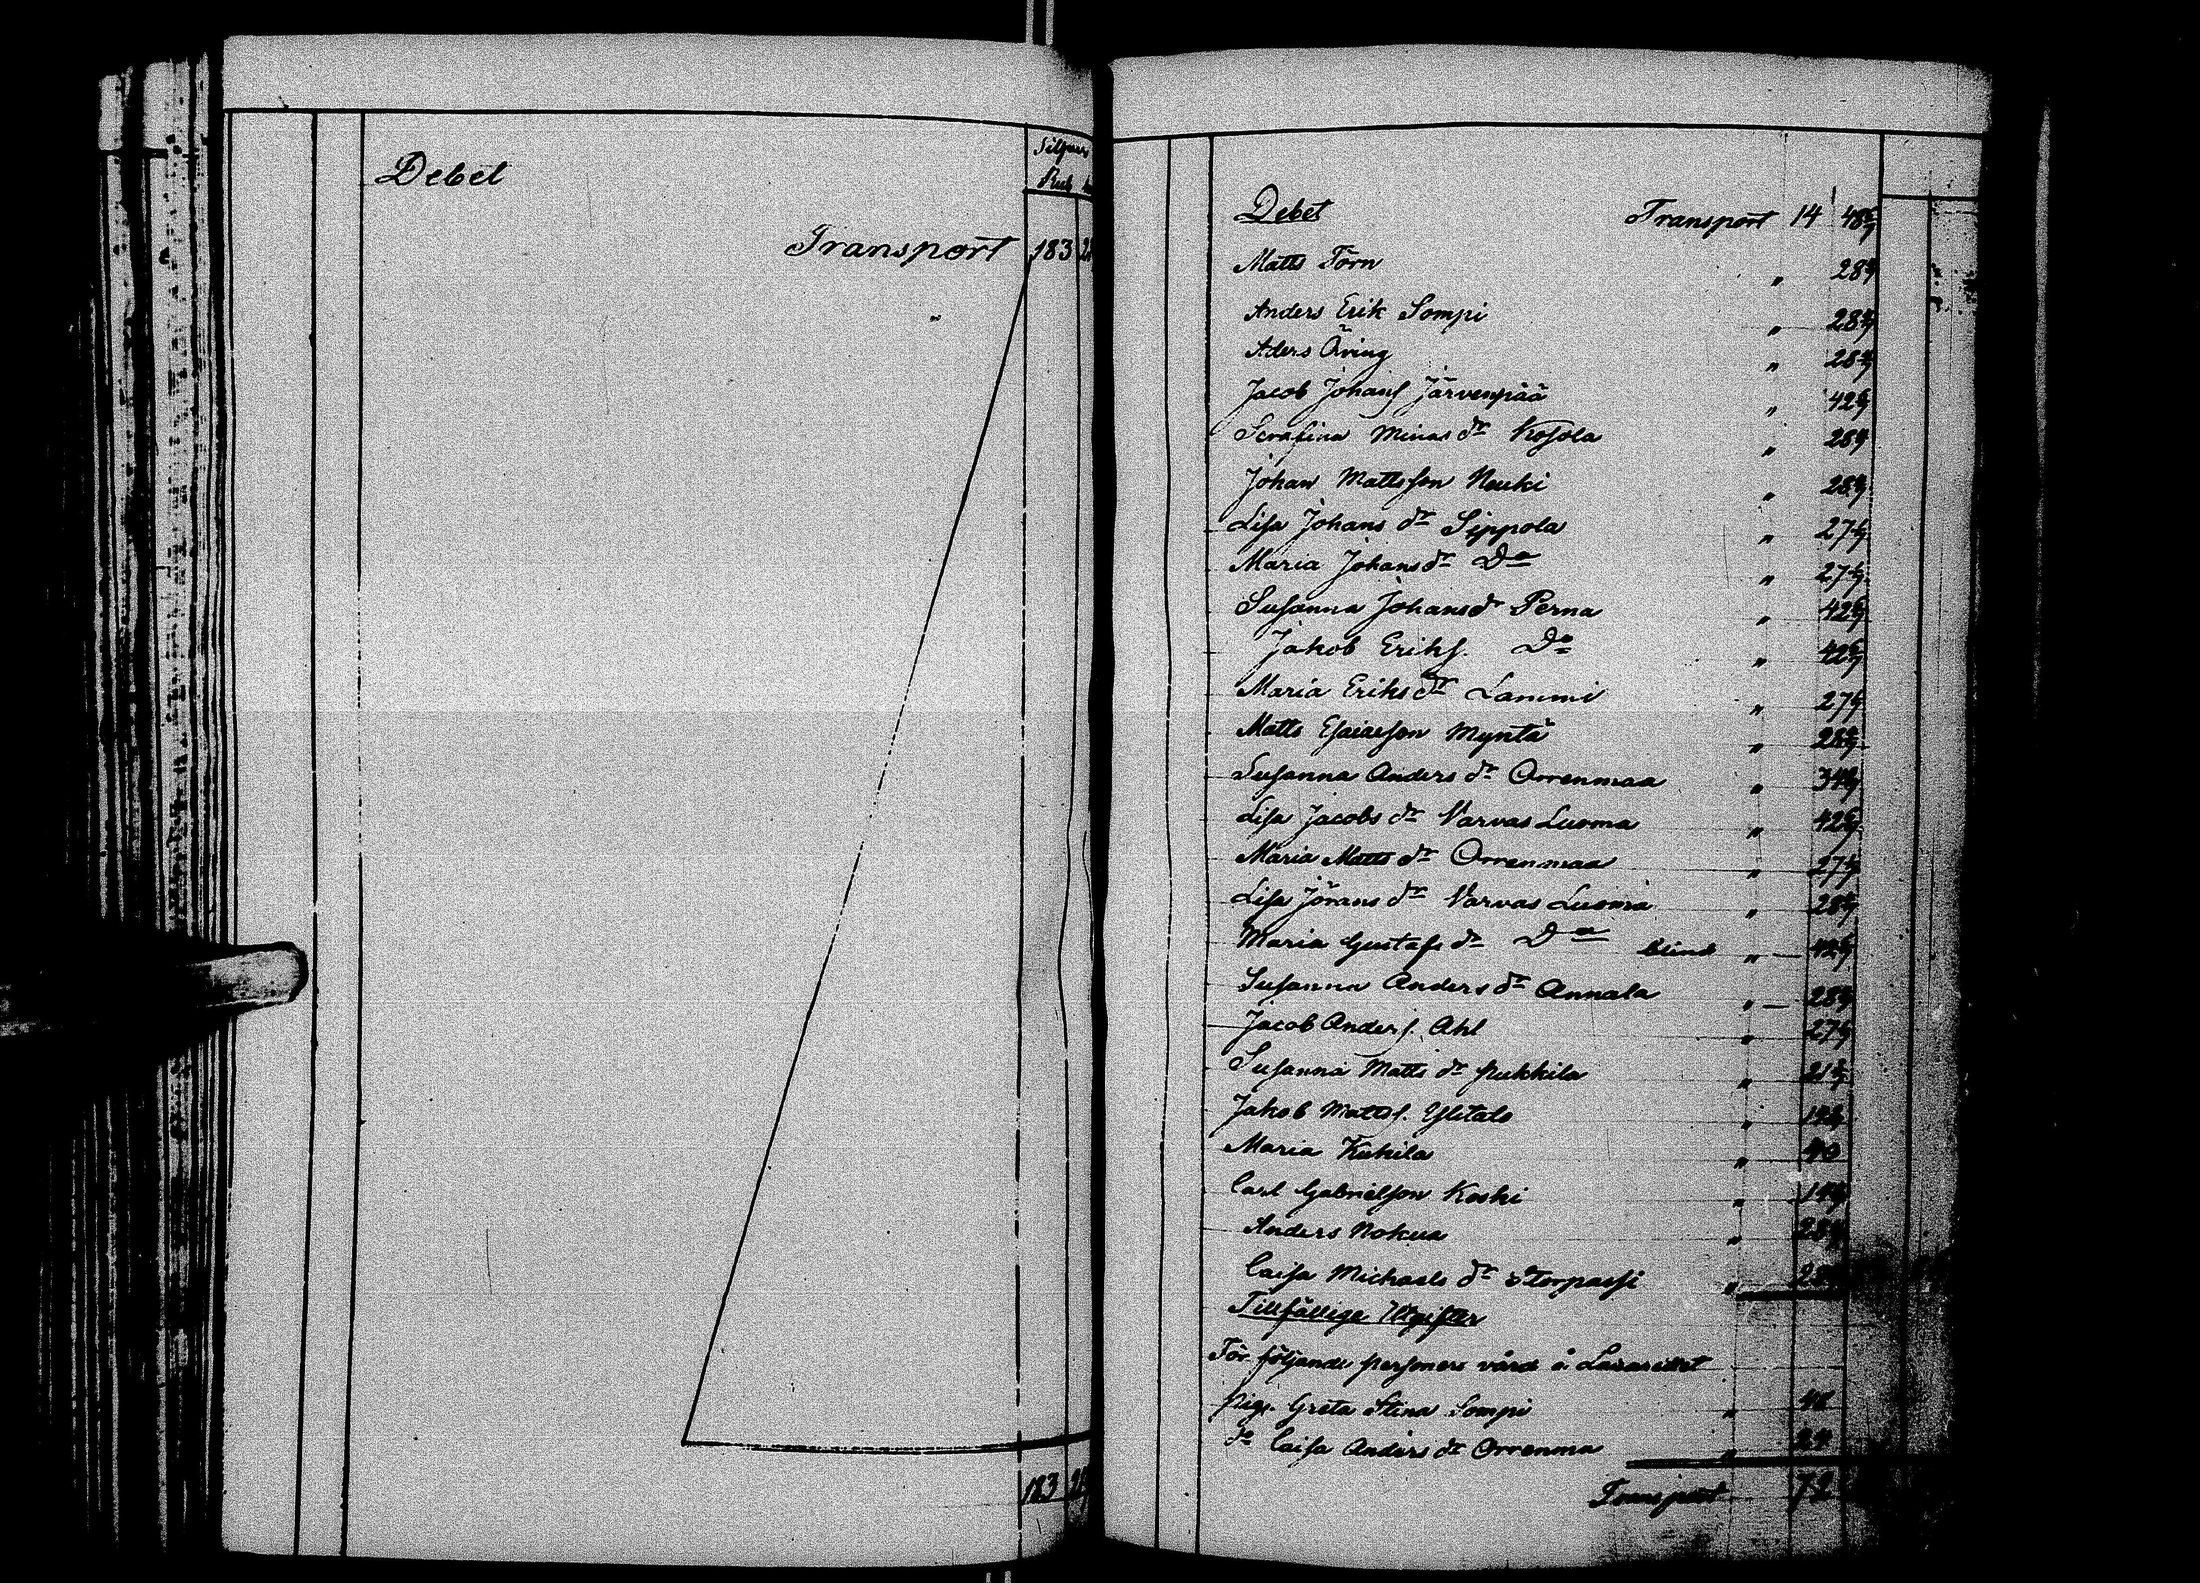 Debet
Silfver
Rub
Transport 183
183
Debet Transport 14 48 4/7
Matts Törn " 28 4/7
Anders Erik Sompi " 28 4/7
Aders Öring " 28 4/7
Jacob Johans Järvenpää " 42 6/7
Serafina Minas dr Kosola " 28 4/7
Johan Mattsson Neuki " 28 4/7
Lisa Johans dr Sippola " 27 4/7
Maria Johans dr Do " 27 4/7
Susanna Johansdr Perna " 42 6/7
Jakob Eriks. Do " 42 6/7
Maria Eriks dr Lammi " 27 4/7
Matts Esaiasson Myntä " 28 4/7
Susanna Anders dr Orrenmaa " 34
Lisa Jacobs dr Varvas Luoma " 42 6/7
Maria Matts dr Orrenmaa " 27 4/7
Lisa Jörans dr Varvas Luoma " 28 4/7
Maria Gustafs dr Do blind " 42 6/7
Susanna Anders dr Annala " 28 4/7
Jacob Anders. Ahl " 27 4/7
Susanna Matts dr Pukkila " 21
Jakob Mattss. Ylitalo " 14
Maria Kukila " 40
Carl Gabrielson Koski " 14
Anders Nokua " 28
Caisa Michaels dr Storpassi "
Tillfällige Utgifter
För följande personers vård å Lazarettet
Pig. Greta Stina Sompi " 48
do Caisa Anders dr Orrenma " 24
Transport 72